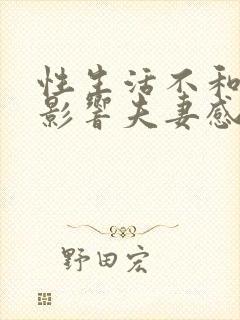 性生活不和
影响夫妻感
野田宏